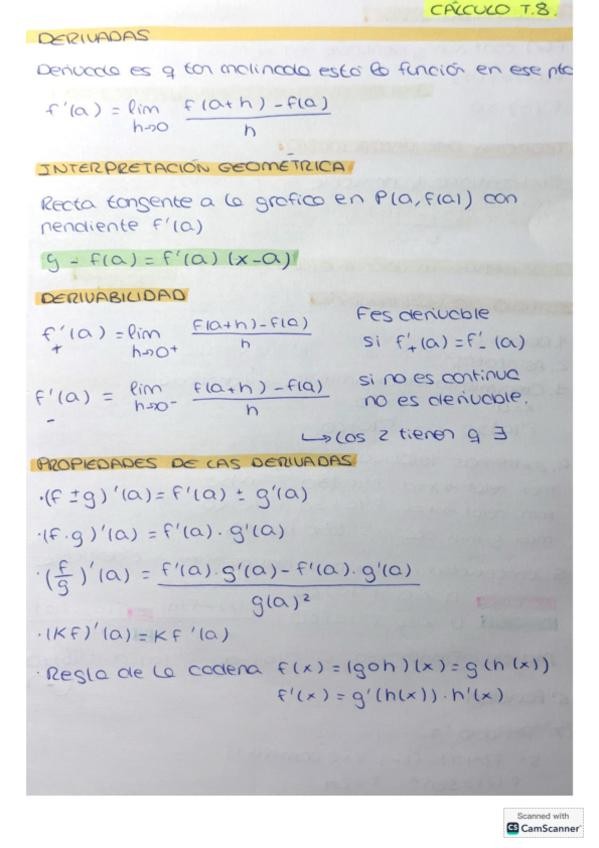 CÁLCULO T.8.
DERIVADAS
Derivada es q tan inclinada está la función en ese pto
f'(a) = lim h→0 f(a+h) - f(a) / h
INTERPRETACIÓN GEOMÉTRICA
Recta tangente a la grafica en P(a, f(a)) con
pendiente f'(a)
y - f(a) = f'(a) (x-a)
DERIVABILIDAD
f'+(a) = lim h→0+ f(a+h) - f(a) / h
f es derivable
si f'+(a) = f'-(a)
f'-(a) = lim h→0- f(a+h) - f(a) / h
si no es continua
no es derivable.
↳ Los 2 tienen q ∃
PROPIEDADES DE LAS DERIVADAS
·(f ± g)'(a) = f'(a) ± g'(a)
·(f·g)'(a) = f'(a) · g'(a)
·(f/g)'(a) = f'(a) · g'(a) - f'(a) · g'(a) / g(a)²
·(Kf)'(a) = Kf'(a)
·Regla de la cadena f(x) = (g o h)(x) = g(h(x))
f'(x) = g'(h(x)) · h'(x)
Scanned with
CS CamScanner